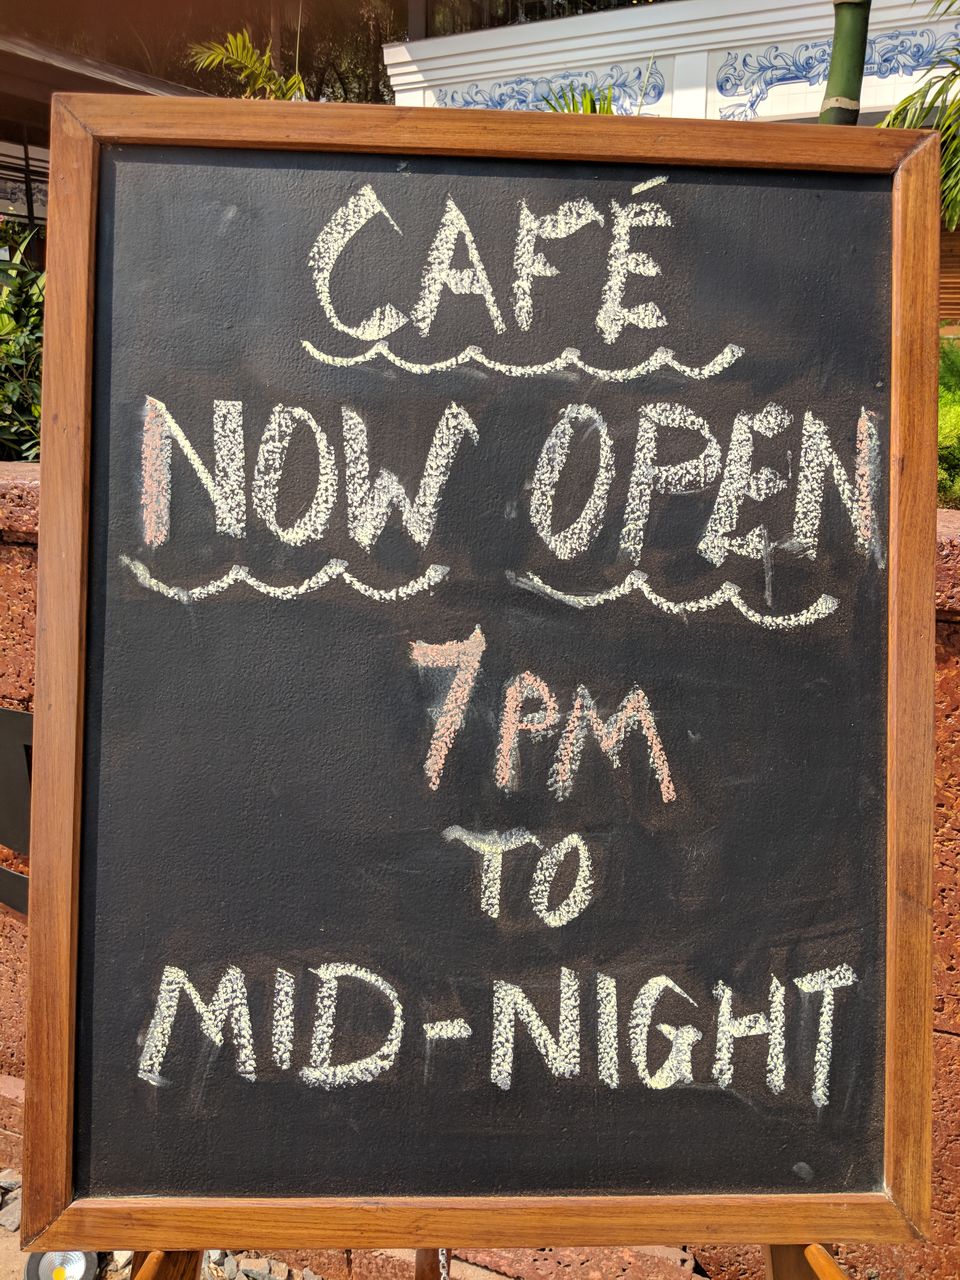 CAFÉ
NOW OPEN
7PM
TO
MID-NIGHT